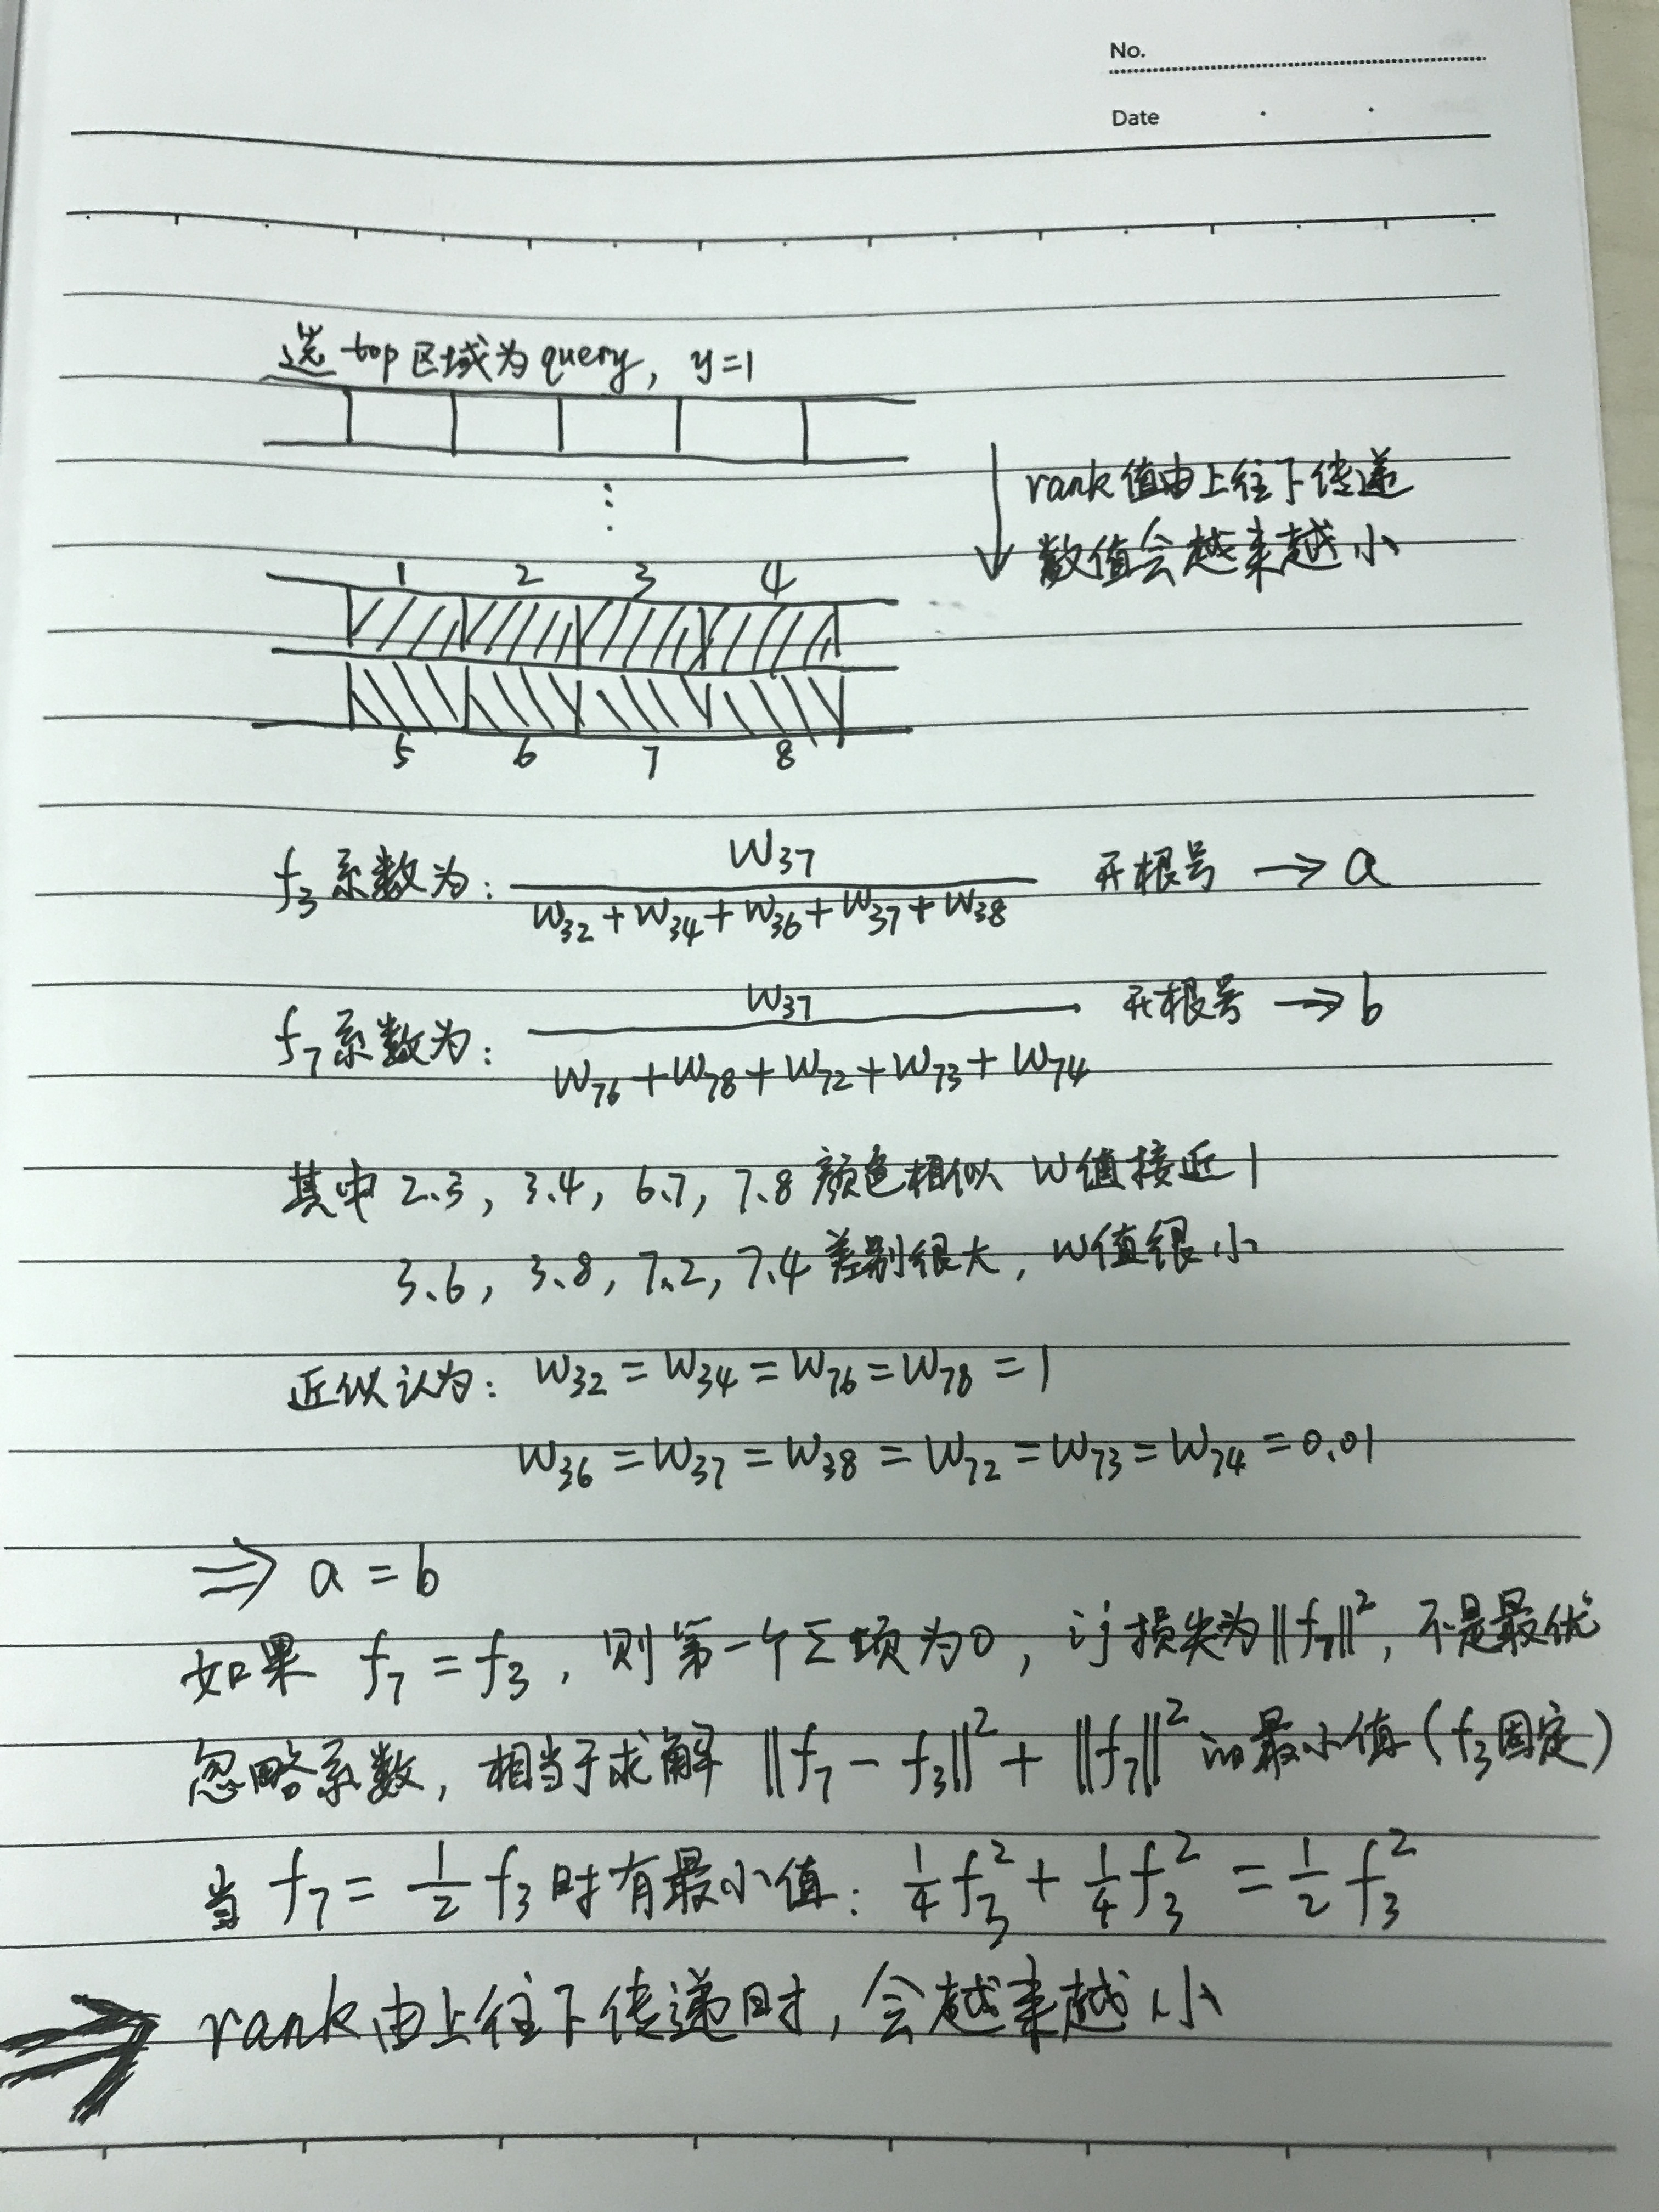 No.
Date
选top区域为query, y=1
rank值由上往下传递
数值会越来越小
1 2 3 4
5 6 7 8
f₃系数为: W₃₇ / (W₃₂+W₃₄+W₃₆+W₃₇+W₃₈) 开根号 → a
f₇系数为: W₃₇ / (W₇₆+W₇₈+W₇₂+W₇₃+W₇₄) 开根号 → b
其中 2、3, 3、4, 6、7, 7、8 颜色相似 W值接近1
3、6, 3、8, 7、2, 7、4 差别很大, W值很小
近似认为: W₃₂=W₃₄=W₇₆=W₇₈=1
W₃₆=W₃₇=W₃₈=W₇₂=W₇₃=W₇₄=0.01
⇒ a=b
如果 f₇=f₃, 则第一个Σ项为0, 损失为||f₇||², 不是最优
忽略系数, 相当于求解 ||f₇-f₃||²+||f₇||² 的最小值(f₃固定)
当 f₇=1/2 f₃时有最小值: 1/4 f₃²+1/4 f₃²=1/2 f₃²
⇒ rank由上往下传递时, 会越来越小